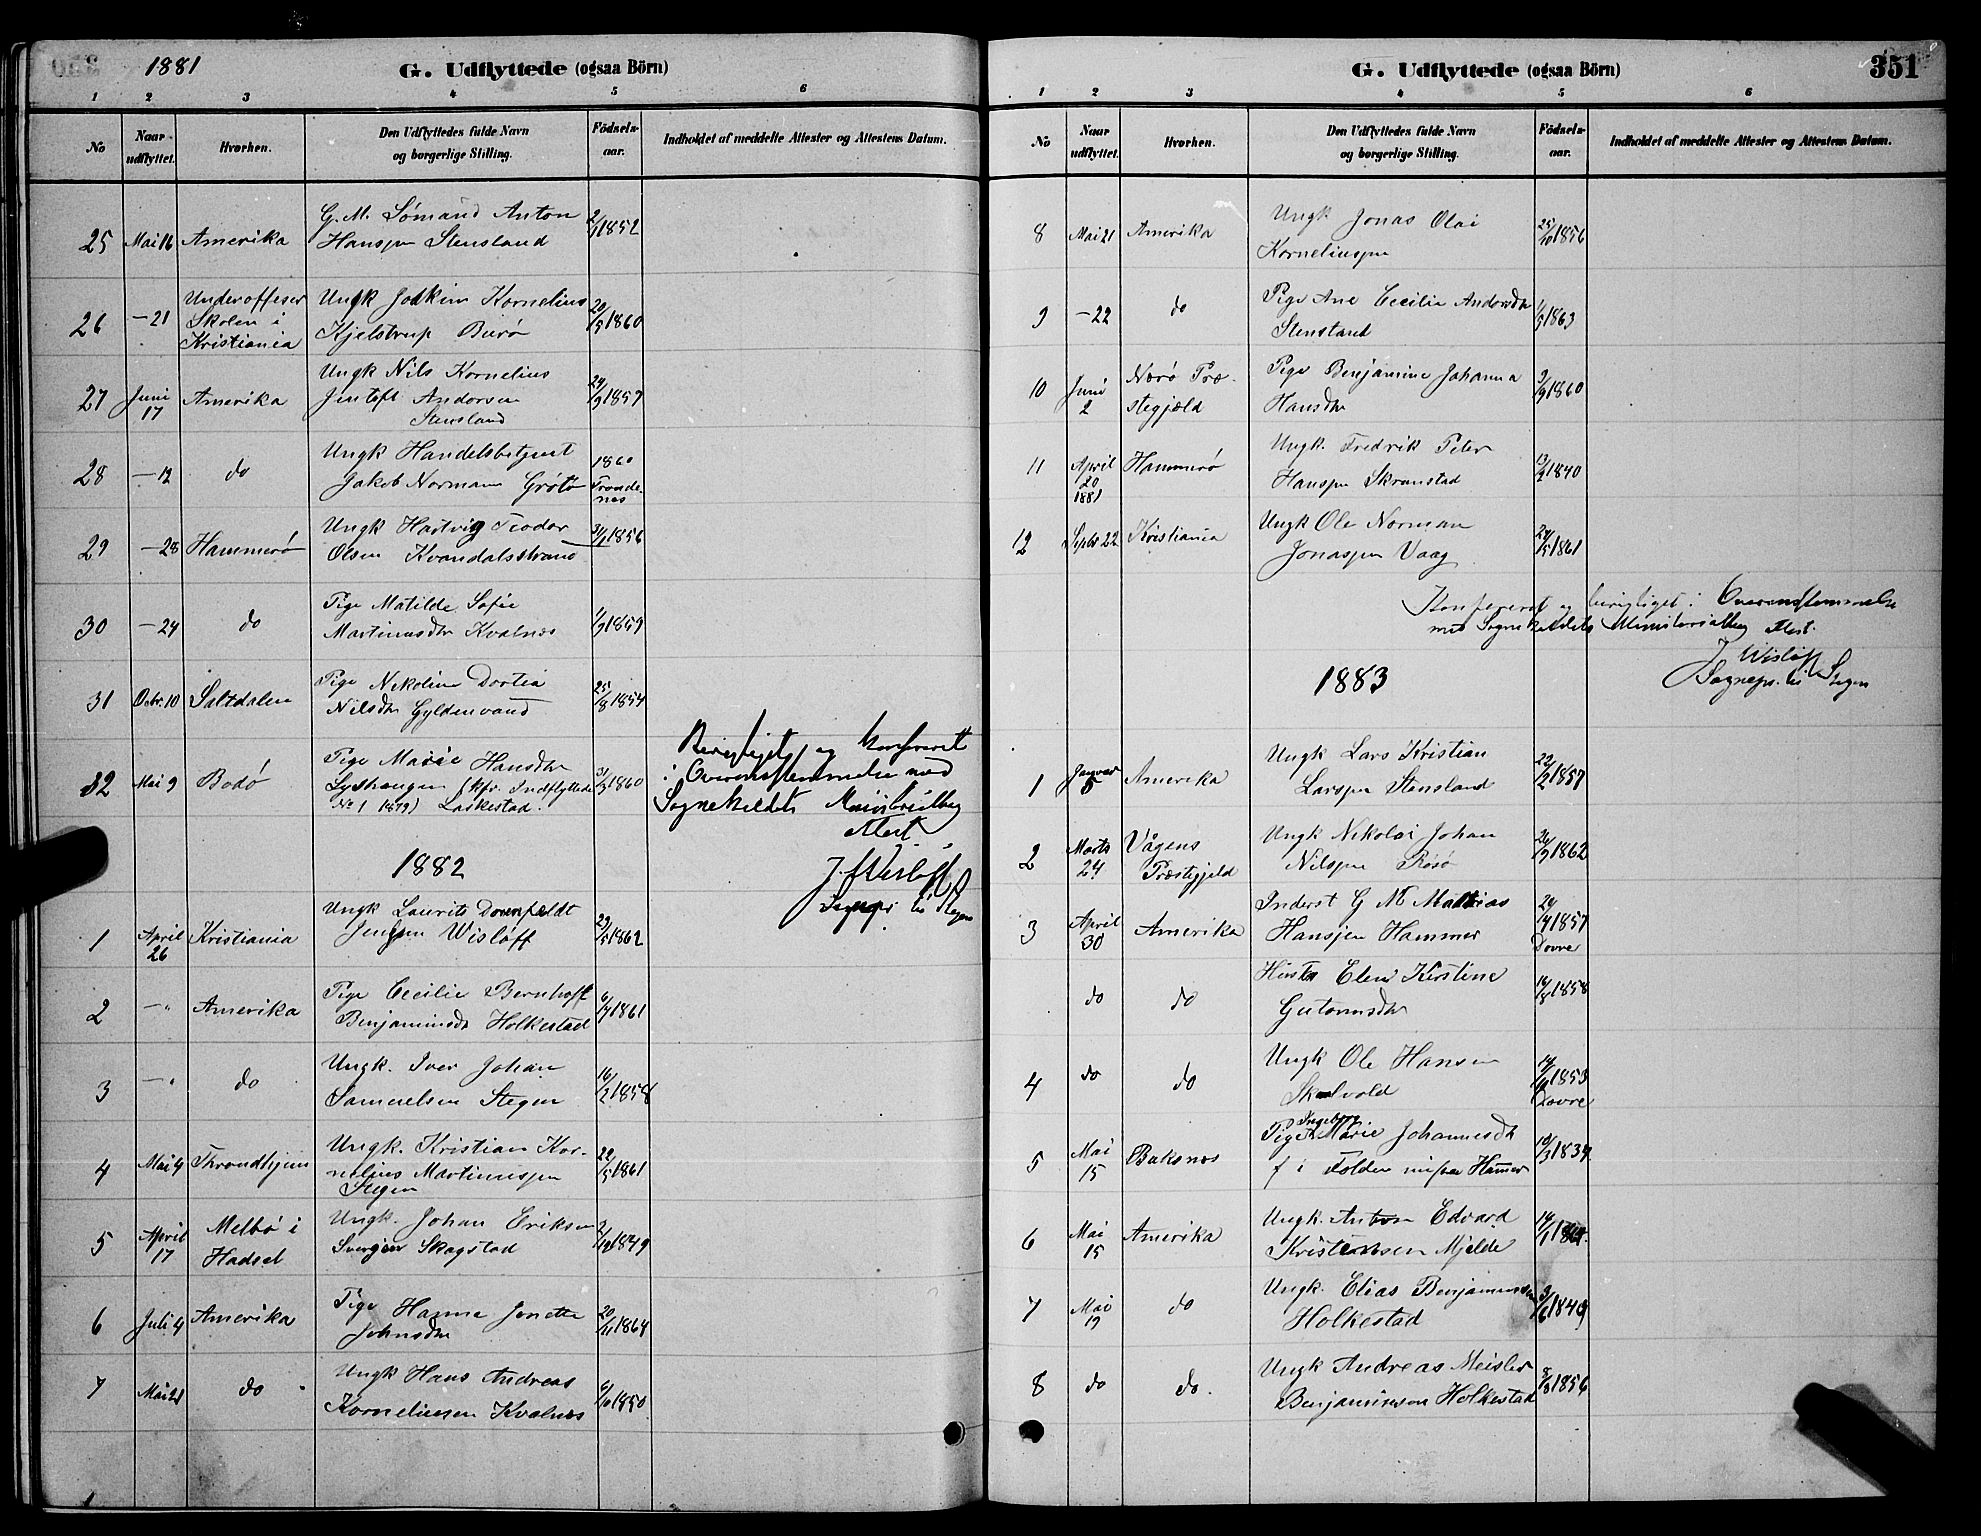 1881
G. Udflyttede (ogsaa Börn)
1 2 3 4 5 6
No
Naar udflyttet.
Hvorhen.
Den Udflyttedes fulde Navn og borgerlige Stilling.
Födsels-aar.
Indholdet af meddelte Attester og Attestens Datum.
25 Mai 16 Amerika G. M. Sømand Anton 2/1 1852
Hansen Stensland
26 -21 Underofficer Skolen i Kristiania Ungk Joakim Kornelius 20/5 1860
Kjelstrup Burø
27 Juni 17 Amerika Ungk Nils Kornelius 29/9 1857
Jentoft Andorsen
Stensland
28 -17 do Ungk Handelsbetjent 1860
Jakob Normann Grøtø Trondenes
29 -28 Hammerø Ungk Hartvig Teodor 1856
Olsen Kvandalsstrand
30 -24 do Pige Matilde Sofie 1/9 1859
Martinusdtr Kvalnes
31 Octbr. 10 Saltdalen Pige Nikoline Dortea 25/8 1854
Nilsdtr Gyldenvand
32 Mai 9 Bodø Pige Marie Hansdtr 3/3 1860
Lyshaugen (kfr. Indflyttede
No 1 1879) Laskestad.
Berigtiget og konfereret
i Overensstemmelse med
Sognekaldets Ministerialbog
Attest.
J. Wisløff
Sognepr til Stegen
1882
1 April 26 Kristiania Ungk Laurits Dorenfeldt 23/5 1862
Jensen Wisløff
2 -" Amerika Pige Cecilie Bernhoft 6/7 1861
Benjaminsdtr Holkestad
3 -" do Ungk. Iver Johan 16/2 1858
Samuelsen Stegen
4 Mai 4 Throndhjem Ungk. Kristian Kor- 22/5 1861
nelius Martinussen
Stegen
5 April 17 Melbø i Hadsel Ungk. Johan Eriksen 2/12 1849
Skagstad
6 Juli 4 Amerika Pige Hanna Jenette 20/11 1864
Johnsdtr
7 Mai 21 do Ungk Hans Andreas 6/10 1850
Korneliusen Kvalnes
G. Udflyttede (ogsaa Börn)
351
1 2 3 4 5 6
No
Naar udflyttet.
Hvorhen.
Den Udflyttedes fulde Navn og borgerlige Stilling.
Födsels-aar.
Indholdet af meddelte Attester og Attestens Datum.
8 Mai 21 Amerika Ungk Jonas Olai 25/10 1856
Korneliussen
9 -22 do Pige Ane Cecilie Andorsdtr 1/5 1863
Stensland
10 Juni 2 Nærø Præstegjæld Pige Benjamine Johanna 3/9 1860
Hansdtr
11 April 20 1881 Hammerø Ungk. Fredrik Peter 13/2 1840
Hanssen Skranstad
12 Septbr 22 Kristiania Ungk Ole Norman 24/5 1861
Jonassen Vaag
Konfereret og berigtiget i Overensstemmelse
med Sognekaldets Ministerialbog Attest.
J. Wisløff
Sognepr. til Stegen
1883
1 Januar 5 Amerika Ungk Lars Kristian 22/2 1857
Larssen Stensland
2 Marts 24 Vågens Præstegjeld Ungk Nikolai Johan 26/9 1862
Nilssen Røsø
3 April 30 Amerika Inderst G M Mathias 1857
Hansen Hammer Dovre
do do Hustr Eleni Kirstine 1858
Gutormsdtr
4 do do Ungk Ole Hansen 1853
Skalvold Dovre
5 Mai 15 Buksnes Pige Ingeborg Marie Johannesdtr 19/3 1834
f i Folden Hammer
6 Mai 15 Amerika Ungk. Anton Edvard
Kristensen Mjelde
7 Mai 19 do Ungk. Elias Benjaminsen 3/6 1849
Holkestad
8 do do. Ungk Andreas Meisler 8/8 1856
Benjaminsen Holkestad